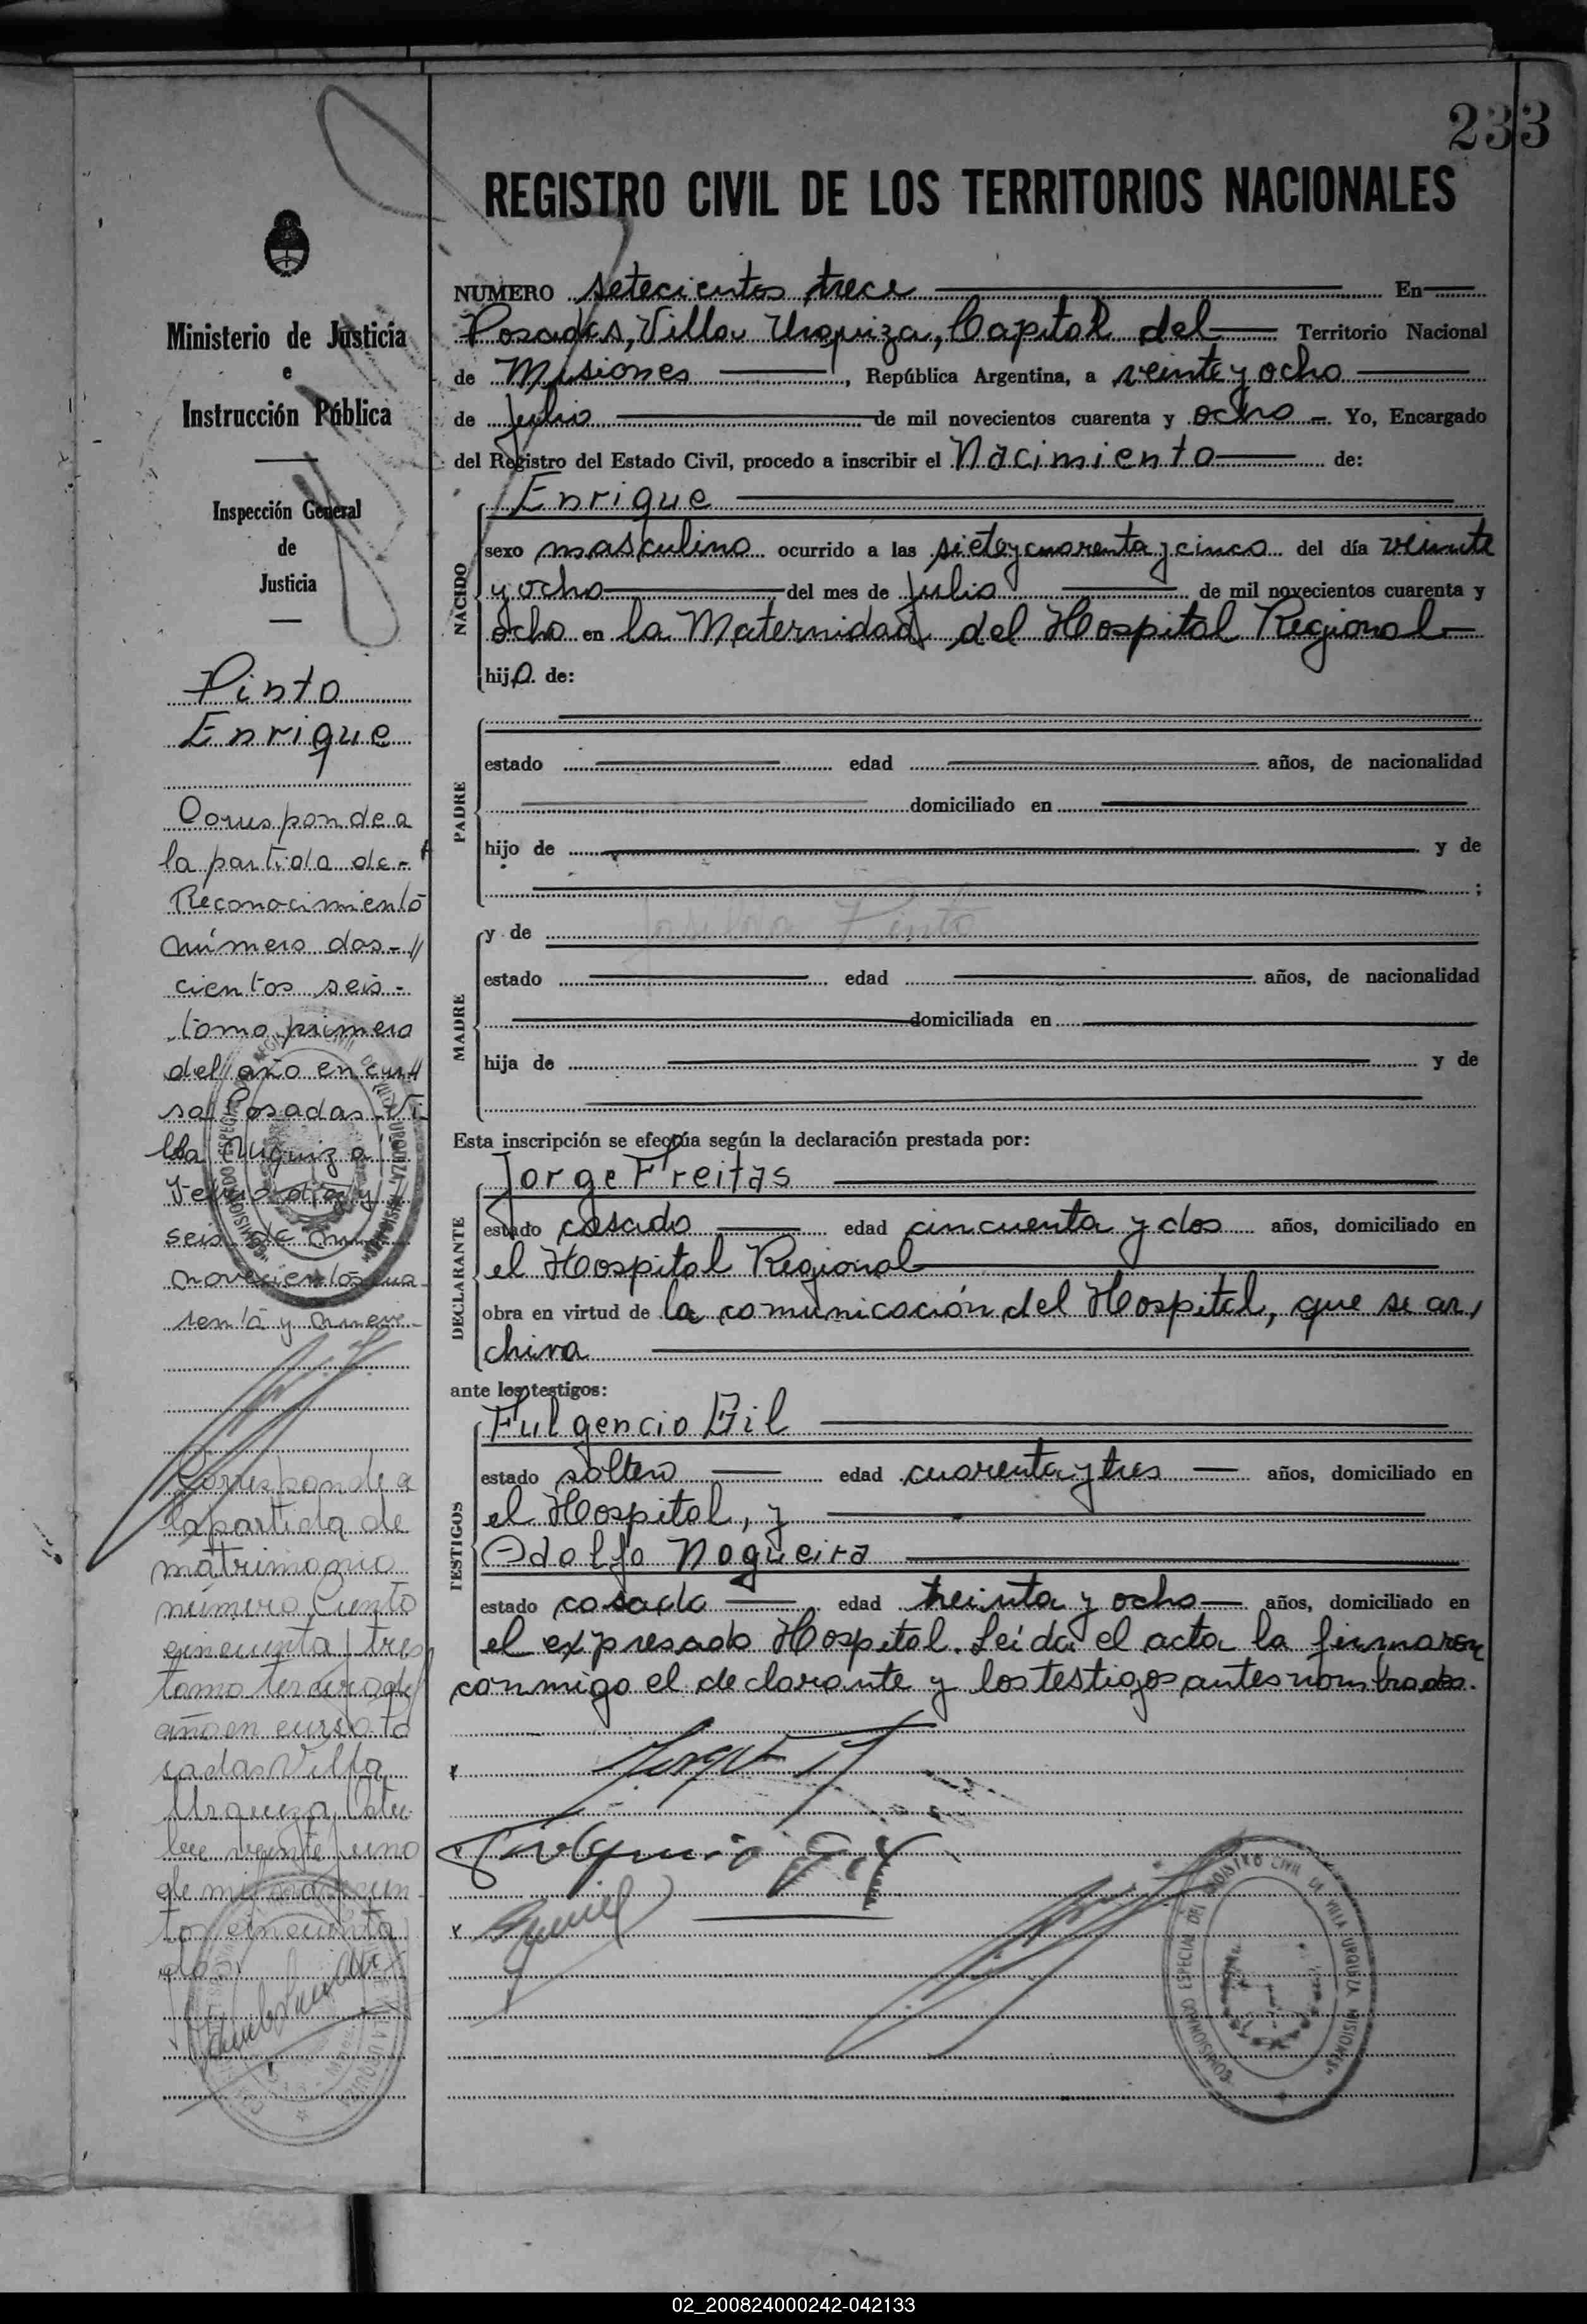 233
REGISTRO CIVIL DE LOS TERRITORIOS NACIONALES
Ministerio de Justicia
e
Instrucción Pública
Inspección General
de
Justicia
Pinto
Enrique
Corresponde a
la partida de
Reconocimiento
número dos-//
cientos seis-
tomo primero
del año en cur//
so Posadas Vi-
lla Urquiza
seis de
novecientos cua-
renta y nueve-
Corresponde a
la partida de
matrimonio
número Ciento
cincuenta y tres
tomo tercero del
año en curso Po
sadas Villa
Urquiza, Octu
bre veinte y uno
de mil novecien
tos cincuenta
y dos
NUMERO setecientos trece En
Posadas, Villa Urquiza, Capital del Territorio Nacional
de Misiones, República Argentina, a veinte y ocho
de Julio de mil novecientos cuarenta y ocho Yo, Encargado
del Registro del Estado Civil, procedo a inscribir el Nacimiento de:
NACIDO
Enrique
sexo masculino ocurrido a las siete y cuarenta y cinco del día veinte
y ocho del mes de Julio de mil novecientos cuarenta y
ocho en la Maternidad del Hospital Regional
hijo de:
PADRE
estado edad años, de nacionalidad
domiciliado en
hijo de y de
;
MADRE
y de Pinto
estado edad años, de nacionalidad
domiciliada en
hija de y de
Esta inscripción se efectúa según la declaración prestada por:
DECLARANTE
Jorge Freitas
estado casado edad cincuenta y dos años, domiciliado en
el Hospital Regional
obra en virtud de la comunicación del Hospital, que se ar,
chiva
ante los testigos:
TESTIGOS
Fulgencio Gil
estado soltero edad cuarenta y tres años, domiciliado en
el Hospital, y
Adolfo Nogueira
estado casado edad treinta y ocho años, domiciliado en
el expresado Hospital. Leída el acta la firmaron
conmigo el declarante y los testigos antes nombrados.
Jorge F
Fulgencio Gil
COMISIONADO ESPECIAL DEL REGISTRO CIVIL DE VILLA URQUIZA MISIONES
02_200824000242-042133